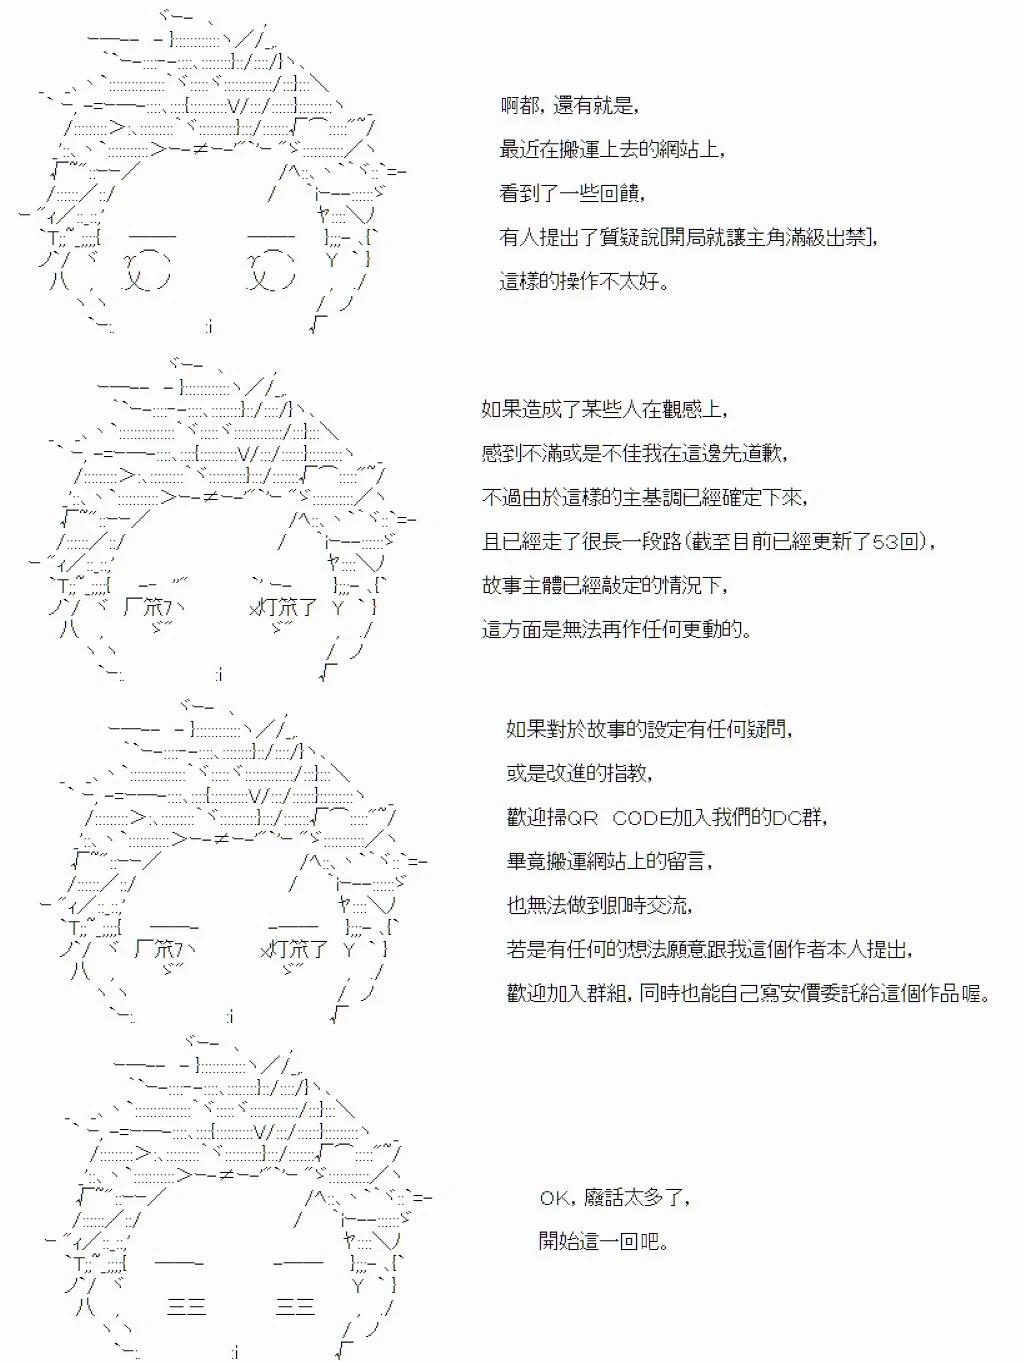 啊都，還有就是，
最近在搬運上去的網站上，
看到了一些回饋，
有人提出了質疑說[開局就讓主角滿級出禁]，
這樣的操作不太好。
如果造成了某些人在觀感上，
感到不滿或是不佳我在這邊先道歉，
不過由於這樣的主基調已經確定下來，
且已經走了很長一段路(截至目前已經更新了53回)，
故事主體已經敲定的情況下，
這方面是無法再作任何更動的。
如果對於故事的設定有任何疑問，
或是改進的指教，
歡迎掃QR　CODE加入我們的DC群，
畢竟搬運網站上的留言，
也無法做到即時交流，
若是有任何的想法願意跟我這個作者本人提出，
歡迎加入群組，同時也能自己寫安價委託給這個作品喔。
OK，廢話太多了，
開始這一回吧。